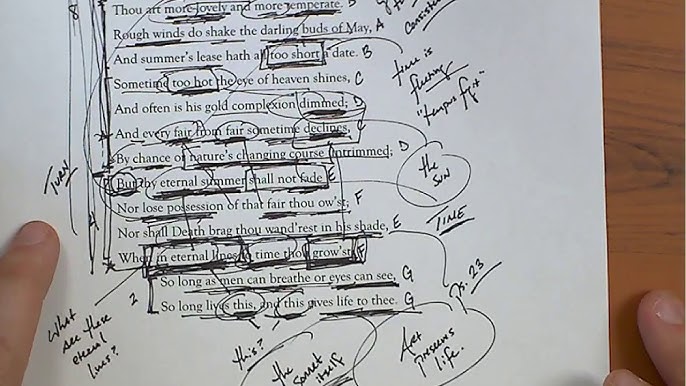 8
Thou art more lovely and more temperate. B
Rough winds do shake the darling buds of May, A
And summer's lease hath all too short a date. B
Sometime too hot the eye of heaven shines, C
And often is his gold complexion dimmed; D
And every fair from fair sometime declines, C
By chance or nature's changing course untrimmed; D
But thy eternal summer shall not fade E
Nor lose possession of that fair thou ow'st; F
Nor shall Death brag thou wand'rest in his shade, E
When in eternal lines to time thou grow'st; F
So long as men can breathe or eyes can see, G
So long lives this, and this gives life to thee. G
time is
fleeting
"tempus fugit"
the
sun
TIME
Turn
4
2
What
are these
eternal
lines?
this?
the
sonnet
itself
Art
preserves
life.
Ps. 23